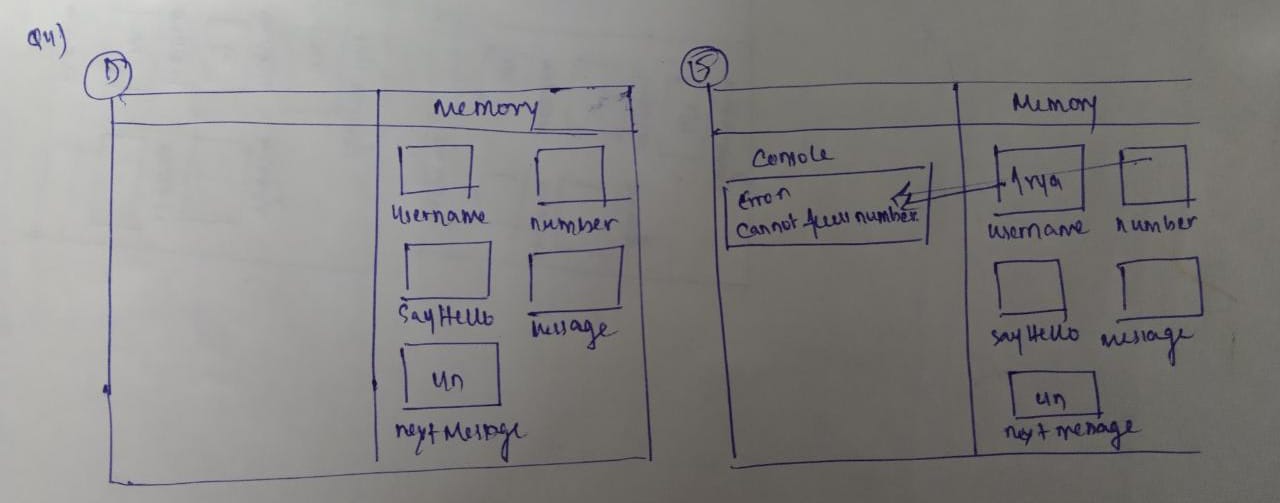 Q4)
D
Memory
username
number
SayHello
Message
un
next Message
E
Memory
Console
Error
Cannot number
Arya
username
number
sayHello
message
un
next message